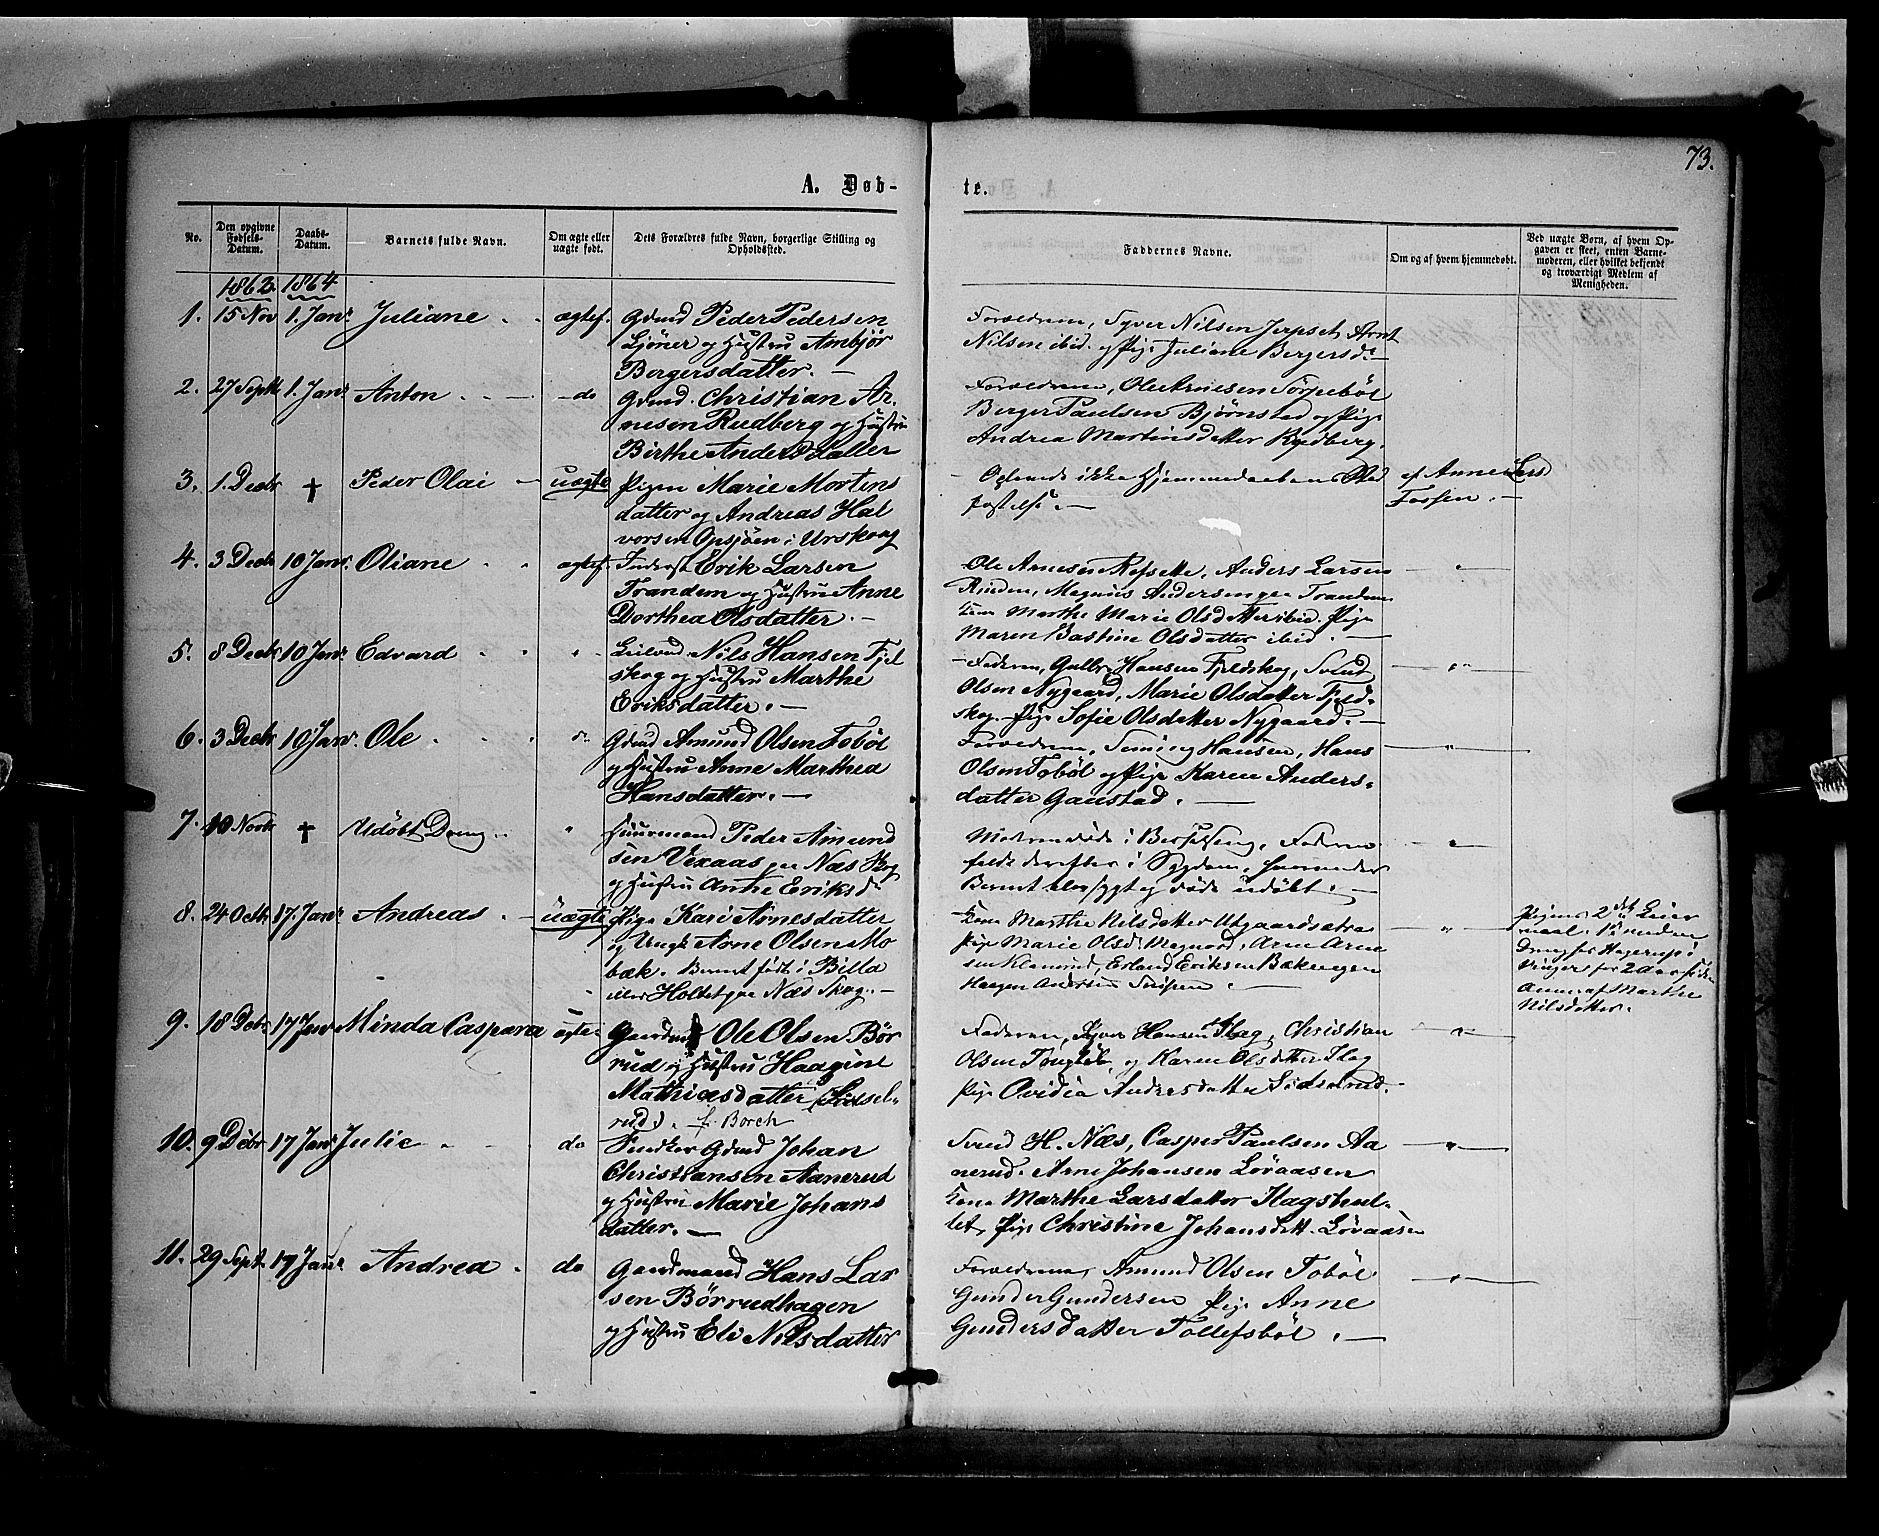 73.
A. Døb-
te.
No.
Den opgivne Fødsels-Datum.
Daabs-Datum.
Barnets fulde Navn.
Om ægte eller uægte født.
Dets Forældres fulde Navn, borgerlige Stilling og Opholdssted.
Faddernes Navne.
Om og af hvem hjemmedøbt.
Ved uægte Børn, af hvem Op-
gaven er skeet, enten Barne-
moderen, eller hvilket bekjendt
og troværdigt Medlem af
Menigheden.
1863 1864
1. 15 Nov 1. Janr Juliane ægtef. Gdmd Peder Pedersen
og Hustru Ambjør
Bergersdatter. —
Forældrene, Syver Nilsen Jerpset, Arnt
Nilsen ibid. og Pige Juliane Bergersd. —
2. 27 Septb 1. Janr Anton do Gdmd. Christian Ar-
nesen Rudberg og Hustru
Birthe Andersdatter
Forældrene, Ole Arnesen
Berger Paulsen Bjørnstad og Pige
Andrea Martinsdatter Rudberg.
3. 1. Decbr † Peder Olai uægte Pigen Marie Mortens
datter og Andreas Hal
vorsen Opsjøen i Urskog
ikke Hjemmedaabens Stad
fæstelse. —
af Anne Lars
Fossen. —
4. 3 Decbr 10 Janr. Oliane ægtef. Inderst Erik Larsen
Trandem og Hustru Anne
Dorthea Olsdatter. —
Ole Arnesen Refsette, Anders Larsen
Magnus Andersen Trandem
Kone Marthe Marie Olsdatter ibid. Pige
Maren Bastine Olsdatter ibid. —
5. 8 Decbr 10 Janr. Edvard " Leilænd. Nils Hansen Fjel
skog og Hustru Marthe
Eriksdatter. —
Faderen, Gulbr. Hansen Fjeldskog,
Olsen Nygaard, Marie Olsdatter Fjeld-
skog. Pige Sofie Olsdatter Nygaard. —
6. 3 Decbr 10 Janr. Ole Gdmd Amund Olsen Tobøl
og Hustru Anne Marthea
Hansdatter. —
Forældrene, Hansen, Hans
Olsen Tobøl og Pige Karen Anders-
datter Gaustad. —
7. 10 Novb † Udøbt Dreng " Huusmand Peder Amund
sen Vexaas paa Næs Skog
og Hustru Anne Eriksd.
Moderen døde i Barselseng, Faderen
faldt derefter i Sygdom, hvorunder
Barnet blev sygt og døde udøbt. —
8. 24 Octb 17. Janr. Andreas uægte Pige Kari Arnesdatter
og Ungk. Arne Olsen Mo-
bæk. Barnet født i Billa
eller Holtet paa Næs Skog. —
Kone Marthe Nilsdatter
Pige Marie Olsd. Magnord, Arne Arne
sen Erland Eriksen
Haagen Andersen
Pigens 2det Leier
maal.
Vinger for 2 Aar siden
Marthe
Nilsdatter.
9. 18 Decbr 17 Janr Minda Caspara ægte Gaardm. Ole Olsen Bør
rud og Hustru Haagine
Mathiasdatter
rud). f. Borch
Faderen, Syver Hansen Hag, Christian
Olsen og Karen Olsdatter Hag
Pige Ovidia Andersdatter
10. 9 Debr 17 Janr Julie do Gdmd Johan
Christiansen Aanerud
og Hustru Marie Johans
datter. —
Svend H. Næs, Casper Paulsen Aa
nerud. Arne Johansen Løraasen
Kone Marthe Larsdatter Hagshul-
let, Pige Christine Johansdatt. Løraasen
11. 29 Sept. 17 Janr. Andrea do Gaardmand Hans Lar
sen Børrudhagen
og Hustru Eli Nilsdatter
Forældrene, Amund Olsen Tobøl
Gunder Gundersen Pige Anne
Gundersdatter Tollefsbøl. —